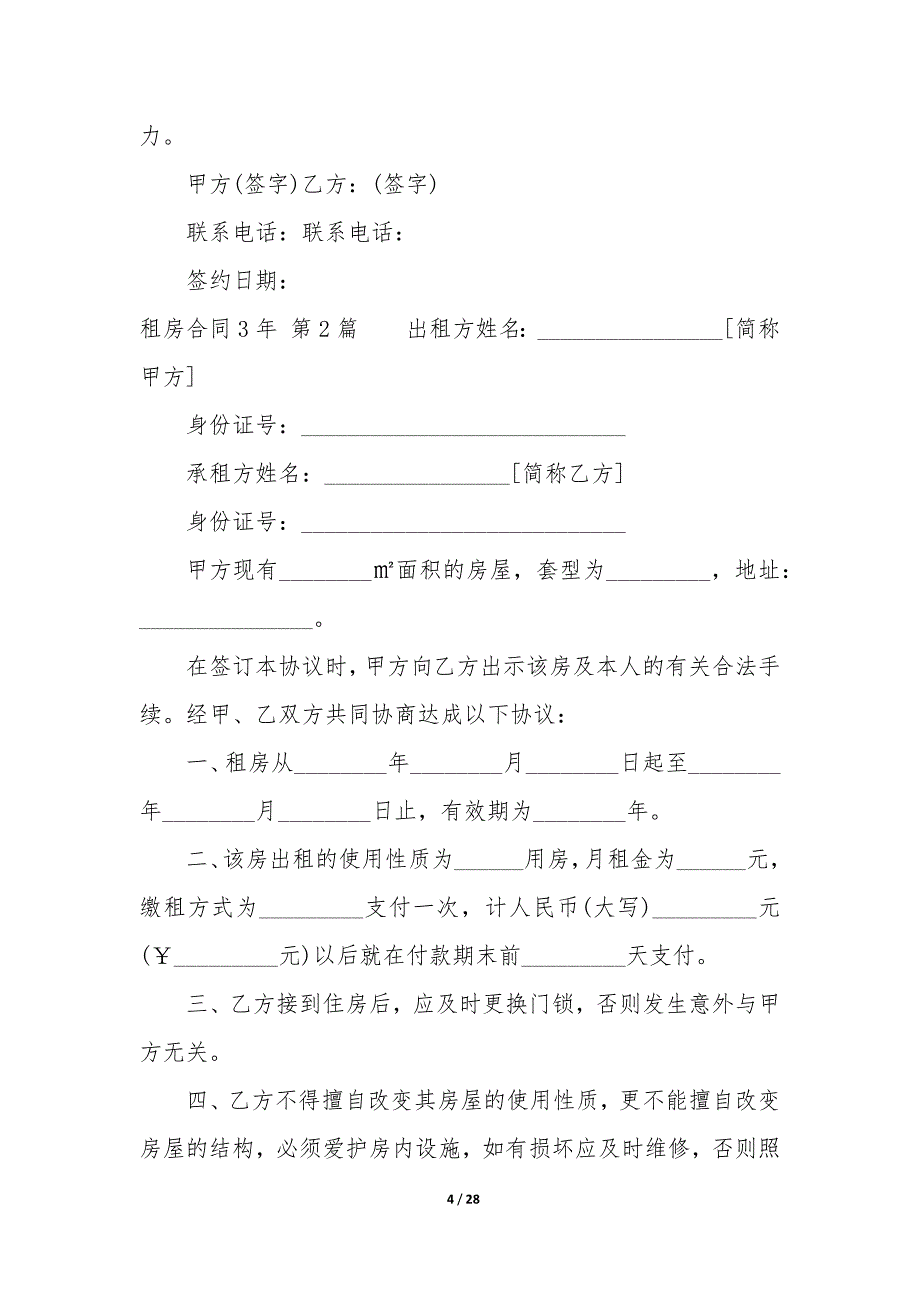 力。
甲方(签字)乙方：(签字)
联系电话：联系电话：
签约日期：
租房合同3年 第2篇　　出租方姓名：________________[简称
甲方]
身份证号：____________________________
承租方姓名：________________[简称乙方]
身份证号：____________________________
甲方现有________㎡面积的房屋，套型为_________，地址：
_______________。
在签订本协议时,甲方向乙方出示该房及本人的有关合法手
续。经甲、乙双方共同协商达成以下协议：
一、租房从________年________月________日起至________
年________月________日止，有效期为________年。
二、该房出租的使用性质为______用房,月租金为______元，
缴租方式为_________支付一次，计人民币(大写)_________元
(￥_________元)以后就在付款期末前_________天支付。
三、乙方接到住房后，应及时更换门锁，否则发生意外与甲
方无关。
四、乙方不得擅自改变其房屋的使用性质，更不能擅自改变
房屋的结构，必须爱护房内设施，如有损坏应及时维修，否则照
4 / 28